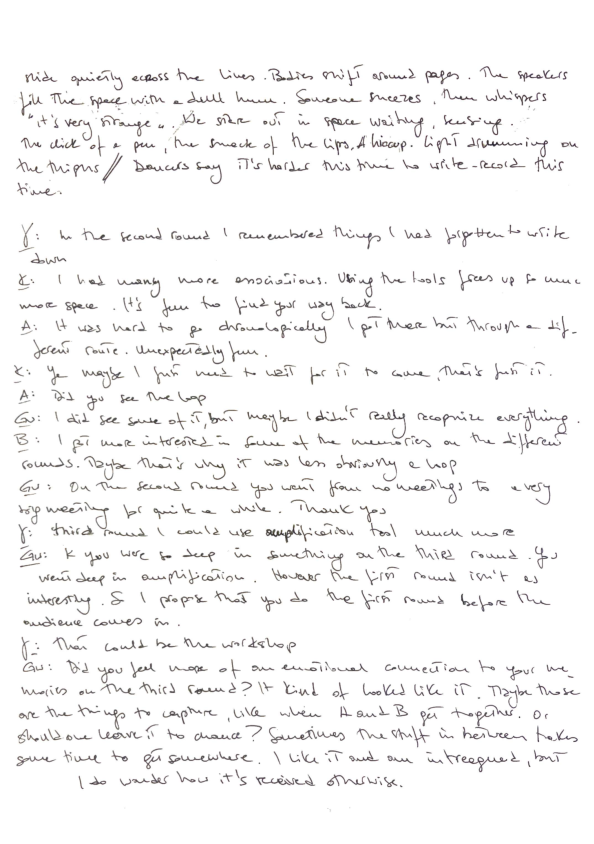 slide quietly across the lines. Bodies shift around pages. The speakers
fill The space with a dull hum. Someone sneezes, then whispers
"it's very strange". We stare out in space waiting, sensing.
The click of a pen, the smack of the lips, A hiccup. Light drumming on
the thighs // Dancers say it's harder this time to write-record this
time.
Y: In the second round I remembered things I had forgotten to write
down
K: I had many more associations. Using the tools frees up so much
more space. It's fun too find your way back.
A: It was hard to go chronologically I got there but through a dif-
ferent route. Unexpectedly fun.
K: Ye maybe I just need to wait for it to come, that's just it.
A: Did you see the loop
Gu: I did see some of it, but maybe I didn't really recognize everything.
B: I got more interested in some of the memories on the different
rounds. Maybe that's why it was less obviously a loop
Gu: On the second round you went from no meetings to a very
big meeting for quite a while. Thank you
Y: third round I could use amplification tool much more
Gu: K you were so deep in something on the third round. You
went deep in amplification. However the first round isn't as
interesting. & I propose that you do the first round before the
audience comes in.
Y: That could be the workshop
Gu: Did you feel more of an emotional connection to your me-
mories on the third round? It kind of looked like it. Maybe those
are the things to capture, like when A and B get together. Or
should one leave it to chance? Sometimes the stuff in between takes
some time to get somewhere. I like it and am intreegued, but
I do wonder how it's received otherwise.